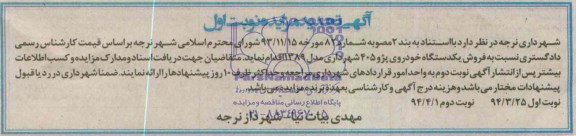 آگهی تجدید مزایده نوبت اول
شهرداری نرجه در نظر دارد با استناد به بند ۲ مصوبه شماره ۸۲ مورخه ۹۳/۱۱/۱۵ شورای محترم اسلامی شهر نرجه بر اساس قیمت کارشناس رسمی
دادگستری نسبت به فروش یکدستگاه خودروی پژو ۴۰۵ شهرداری مدل ۱۳۸۹ اقدام نماید. متقاضیان جهت دریافت اسناد و مدارک مزایده و کسب اطلاعات
بیشتر پس از انتشار آگهی نوبت دوم به واحد امور قراردادهای شهرداری مراجعه و حداکثر ظرف ۱۰ روز پیشنهادها را ارائه نمایند. ضمنا شهرداری در رد یا قبول
پیشنهادات مختار می باشد و هزینه درج آگهی و کارشناسی بعهده برنده مزایده می باشد.
نوبت اول ۹۴/۳/۲۵ نوبت دوم ۹۴/۴/۱
مهدی بیات نیا - شهردار نرجه
ParsNamadData
پایگاه اطلاع رسانی مناقصه و مزایده